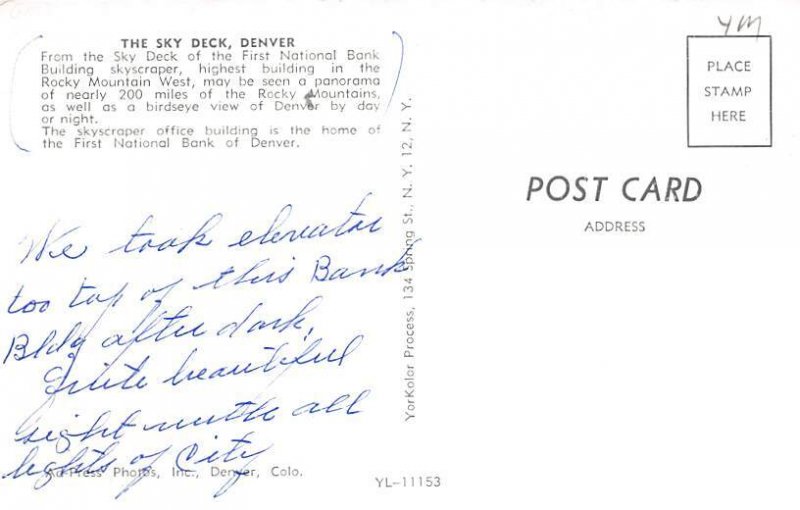 THE SKY DECK, DENVER
From the Sky Deck of the First National Bank
Building skyscraper, highest building in the
Rocky Mountain West, may be seen a panorama
of nearly 200 miles of the Rocky Mountains,
as well as a birdseye view of Denver by day
or night.
The skyscraper office building is the home of
the First National Bank of Denver.
We took elevator
too top of this Bank
Bldg after dark,
Quite beautiful
sight with all
lights of City
Ad-Press Photos, Inc., Denver, Colo.
YorKolor Process, 134 Spring St., N. Y. 12, N. Y.
YL-11153
YM
PLACE
STAMP
HERE
POST CARD
ADDRESS